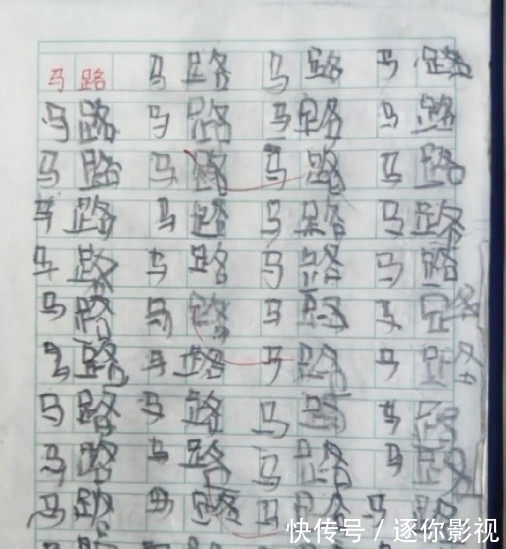 马路 马路 马路 马路
马路 马路 马路 马路
马路 马路 马路 马路
马路 马路 马路 马路
马路 马路 马路 马路
马路 马路 马路 马路
马路 马路 马路 马路
马路 马路 马路 马路
马路 马路 马路 马路
马路 马路 马路 马路
快传号/逐你影视